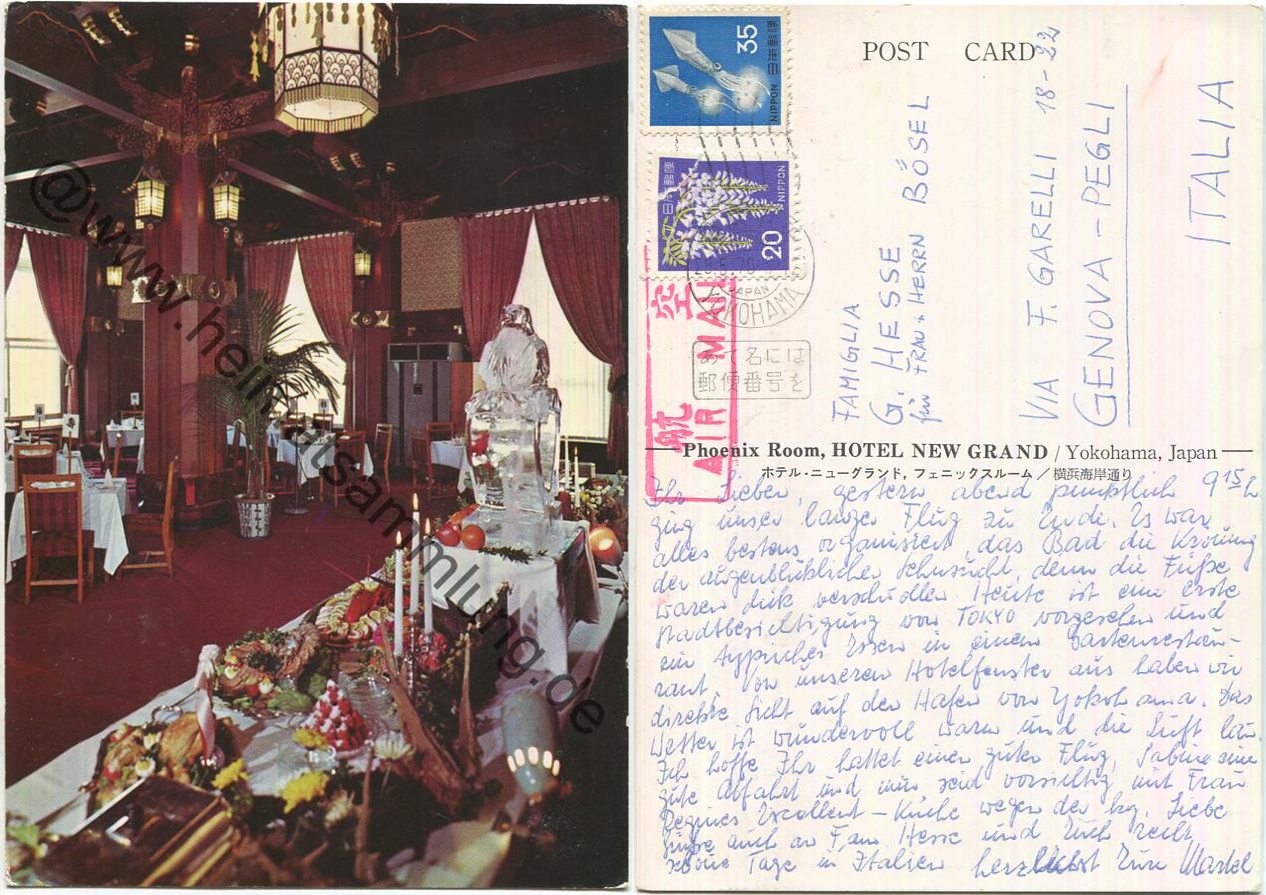 @www.heimatsammlung.de
POST CARD
35
日本郵便
NIPPON
日本郵便
NIPPON
20
JAPAN
YOKOHAMA
航空
AIR MAIL
あて名には
郵便番号を
FAMIGLIA
G. HESSE
für FRAU + HERRN BÖSEL
VIA F. GARELLI 18-22
GENOVA - PEGLI
ITALIA
Phoenix Room, HOTEL NEW GRAND / Yokohama, Japan
ホテル・ニューグランド, フェニックスルーム / 横浜海岸通り
Ihr Lieben, gestern abend pünktlich 9 15 h
ging unser langer Flug zu Ende. Es war
alles bestens organisiert, das Bad die Krönung
der augenblicklichen Sehnsucht, denn die Füße
waren dick verschollen. Heute ist eine erste
Stadtbesichtigung von TOKYO vorgesehen und
ein typisches Essen in einem Gartenrestau-
rant. Von unseren Hotelfenster aus haben wir
direkte Sicht auf den Hafen von Yokohama. Das
Wetter ist wundervoll warm und die Luft lau.
Ich hoffe Ihr hattet einen guten Flug, Sabine eine
gute Abfahrt und nun seid vorsichtig mit Frau
Regines Excellent-Küche wegen der kg. Liebe
Grüße auch an Fam. Hesse und Euch recht
schöne Tage in Italien herzlichst Eure Martel